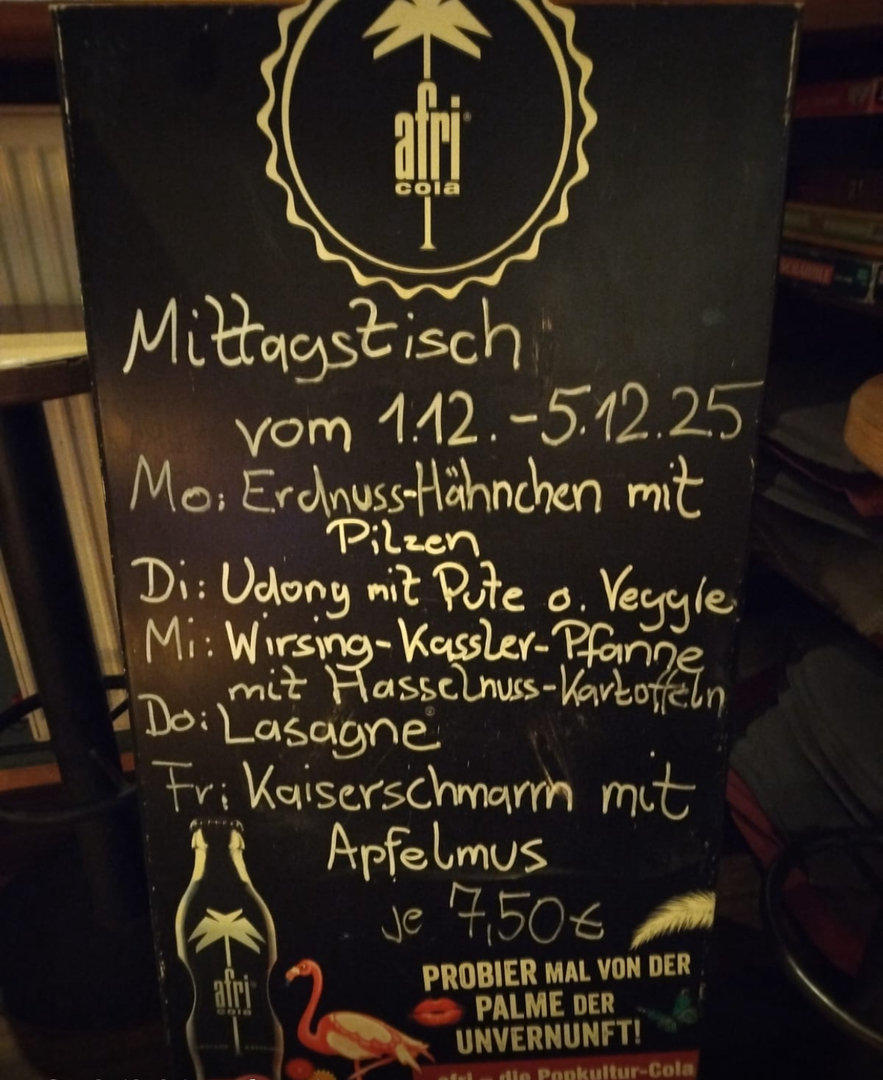 afri
cola
Mittagstisch
vom 1.12.-5.12.25
Mo: Erdnuss-Hähnchen mit
Pilzen
Di: Udony mit Pute o. Veggie
Mi: Wirsing-Kassler-Pfanne
mit Hasselnuss-Kartoffeln
Do: Lasagne
Fr: Kaiserschmarrn mit
Apfelmus
je 7,50€
afri
cola
PROBIER MAL VON DER
PALME DER
UNVERNUNFT!
afri – die Popkultur-Cola
SCRABBLE